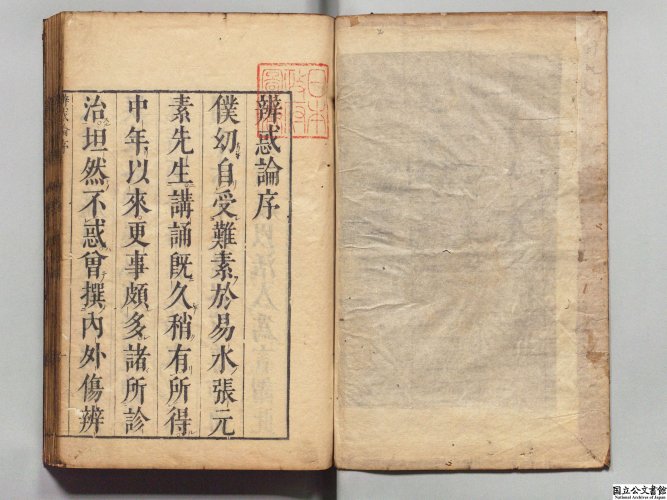 辨惑論序
僕幼自受難素於易水張元
素先生講誦既久稍有所得
中年以來更事頗多諸所診
治坦然不惑曾撰內外傷辨
日本
政府
圖書
国立公文書館
National Archives of Japan